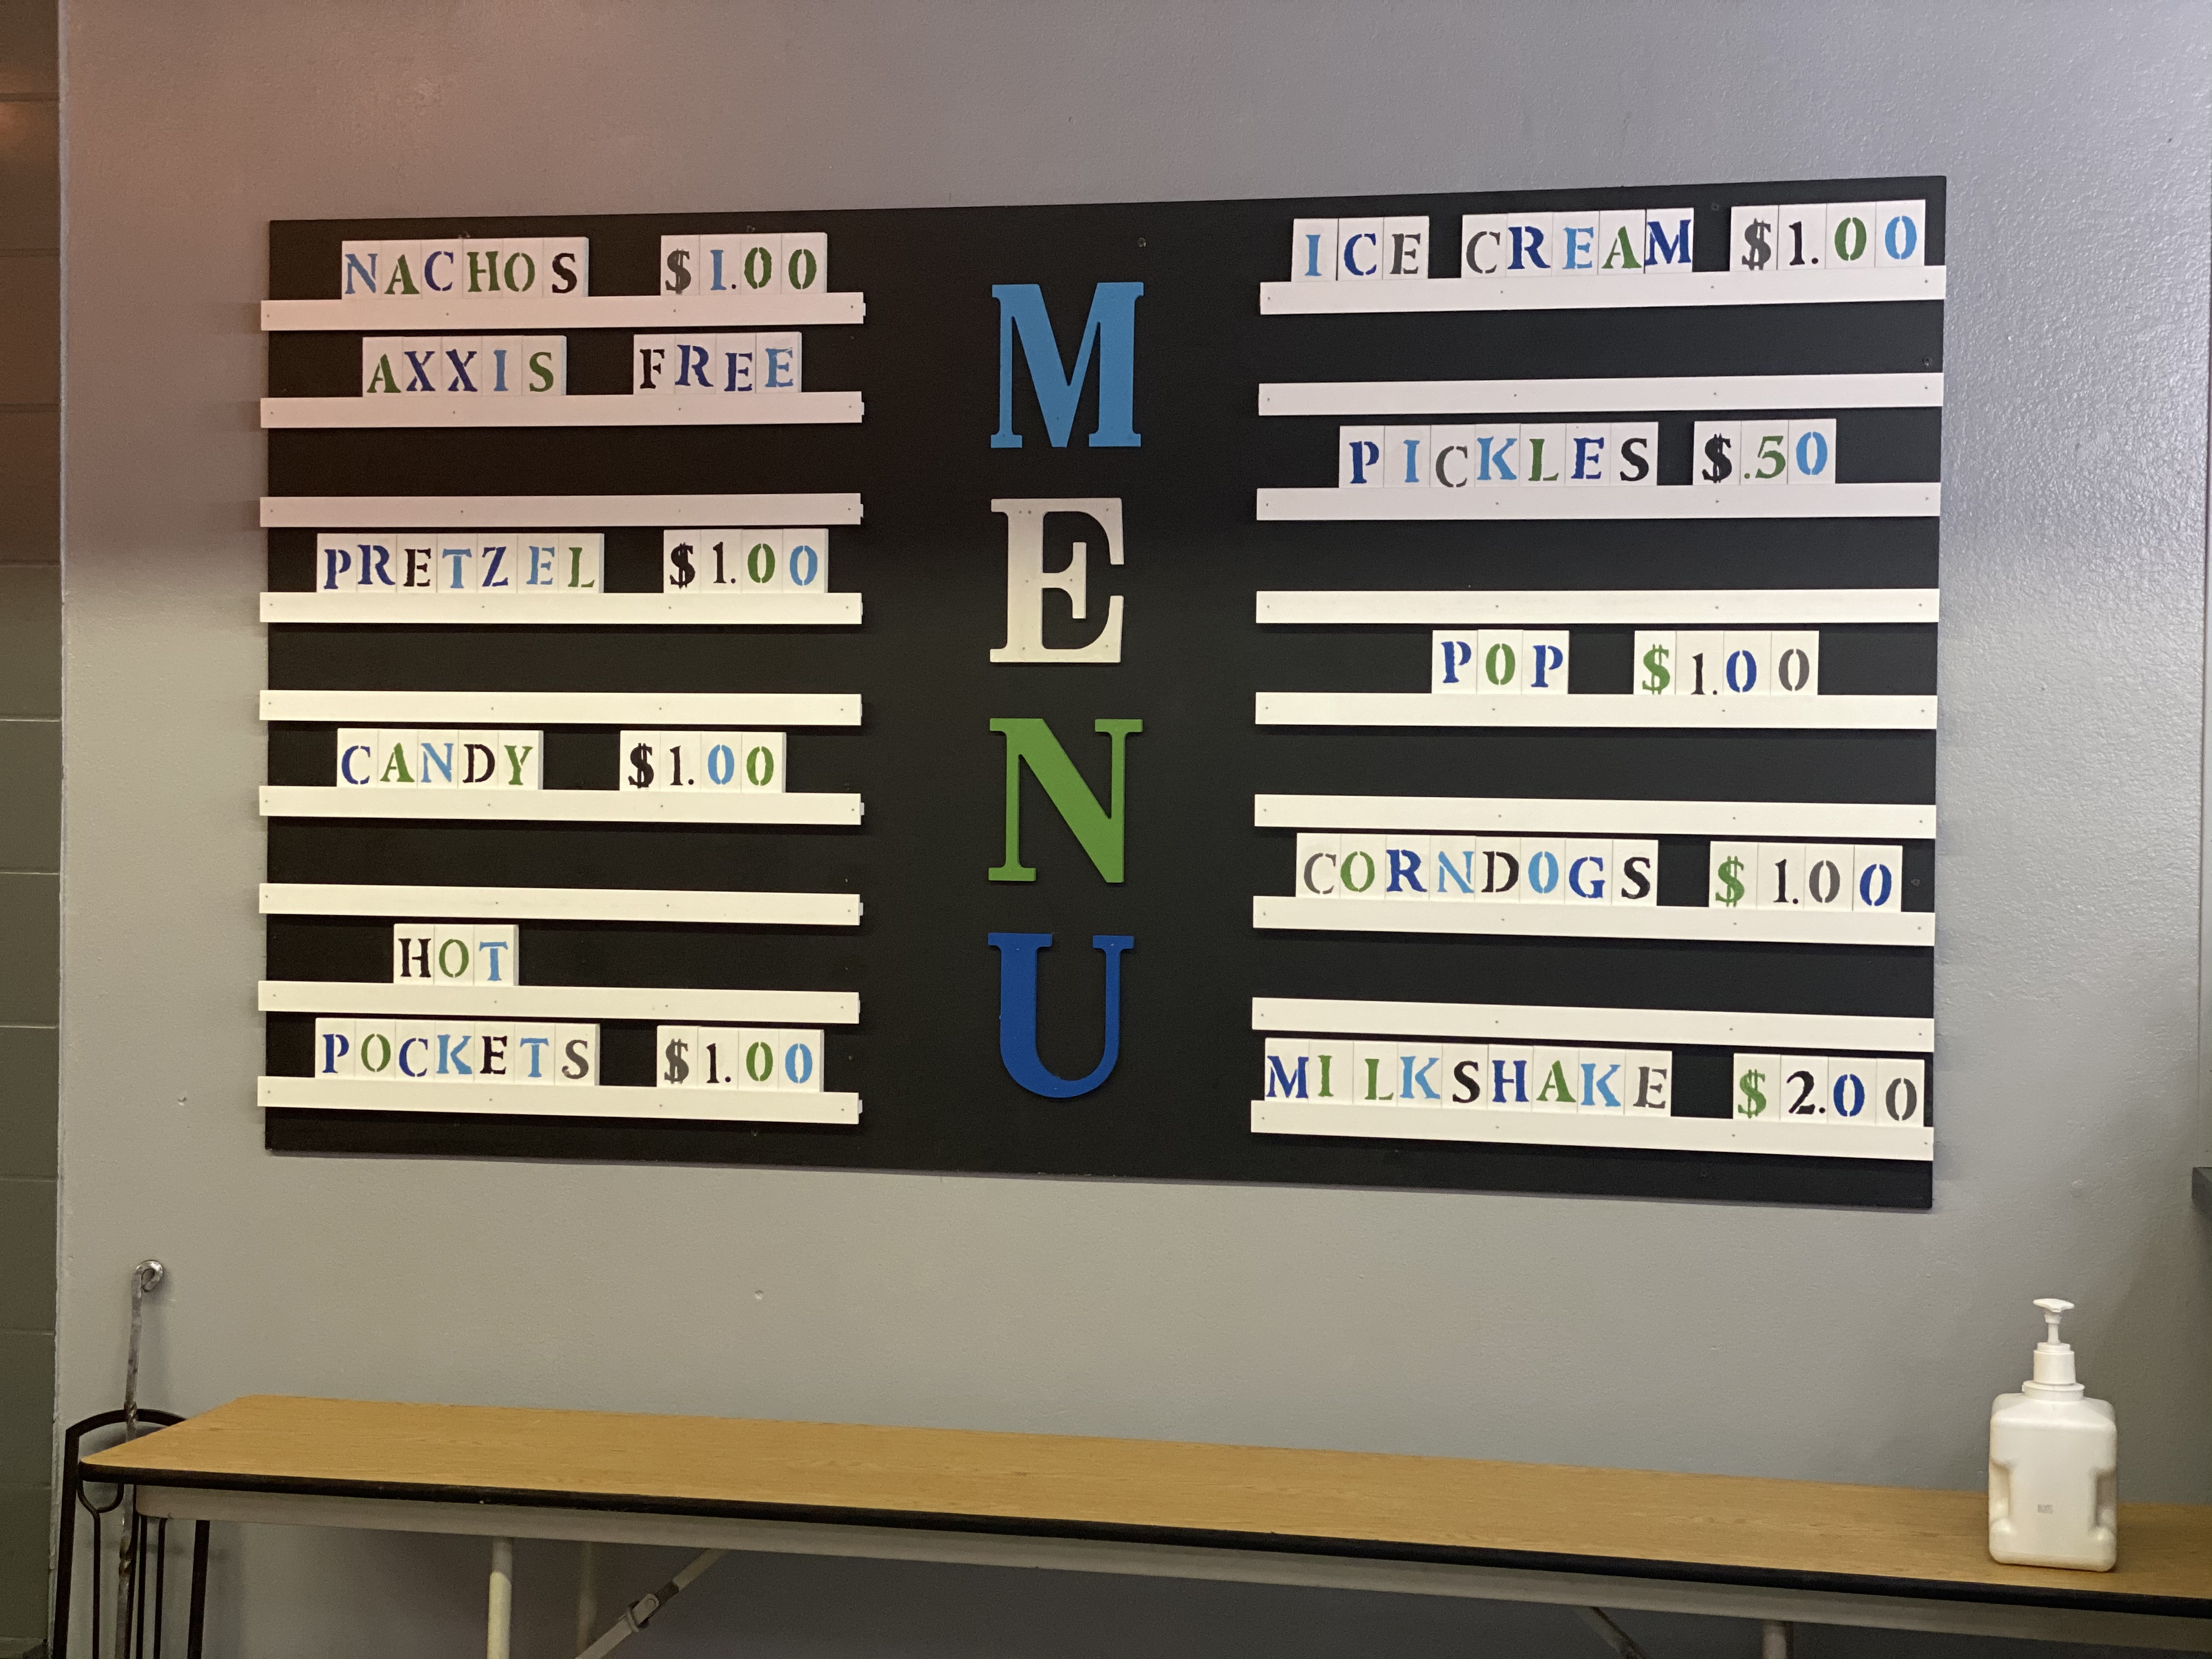 NACHOS $1.00
AXXIS FREE
PRETZEL $1.00
CANDY $1.00
HOT
POCKETS $1.00
MENU
ICE CREAM $1.00
PICKLES $.50
POP $1.00
CORNDOGS $1.00
MILKSHAKE $2.00